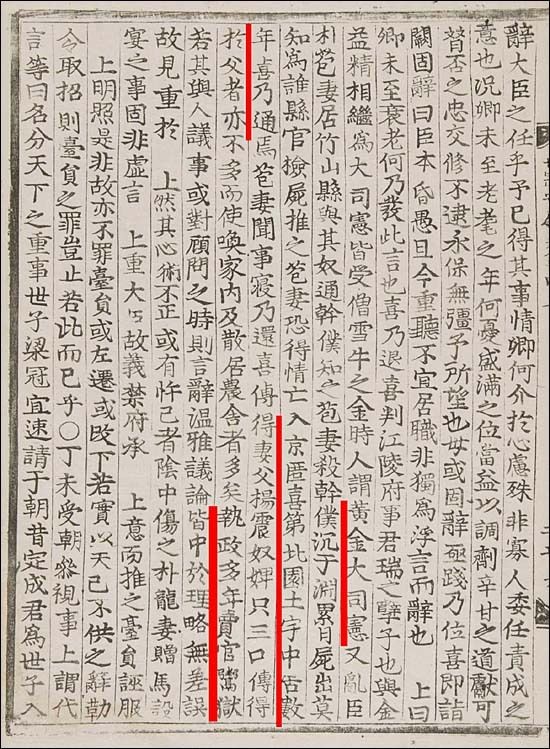 辭大臣之任乎予已得其事情卿何介於心慮殊非寡人委任責成之
意也況卿未至老耄之年何憂盛滿之位當益以調劑辛甘之道獻可
替否之忠交修不逮永保無彊予所望也毋或固辭亟踐乃位喜即詣
闕固辭曰臣本昏愚且今重聽不宜居職非獨爲浮言而辭也 上曰
卿未至衰老何乃發此言也喜乃退喜判江陵府事君瑞之孽子也與金
益精相繼爲大司憲皆受僧雪牛之金時人謂黃金大司憲又亂臣
朴苞妻居竹山縣與其奴通幹僕知之苞妻殺幹僕沉于淵累日屍出莫
知爲誰縣官檢屍推之苞妻恐得情亡入京匿喜第北園土宇中居數
年喜乃通焉苞妻聞事寢乃還喜傳得妻父楊震奴婢只三口傳得
於父者亦不多而使喚家內及散居農舍者多矣執政多年賣官鬻獄
若其與人議事或對顧問之時則言辭溫雅議論皆中於理略無差誤
故見重於 上然其心術不正或有忤己者陰中傷之朴龍妻贈馬設
宴之事固非虛言 上重大臣故義禁府承 上意而推之臺員誣服
上明照是非故亦不罪臺員或左遷或改下若實以天己不供之辭勒
令取招則臺員之罪豈止若此而已乎○丁未受朝參視事 上謂代
言等曰名分天下之重事世子梁冠宜速請于朝昔定成君爲世子入